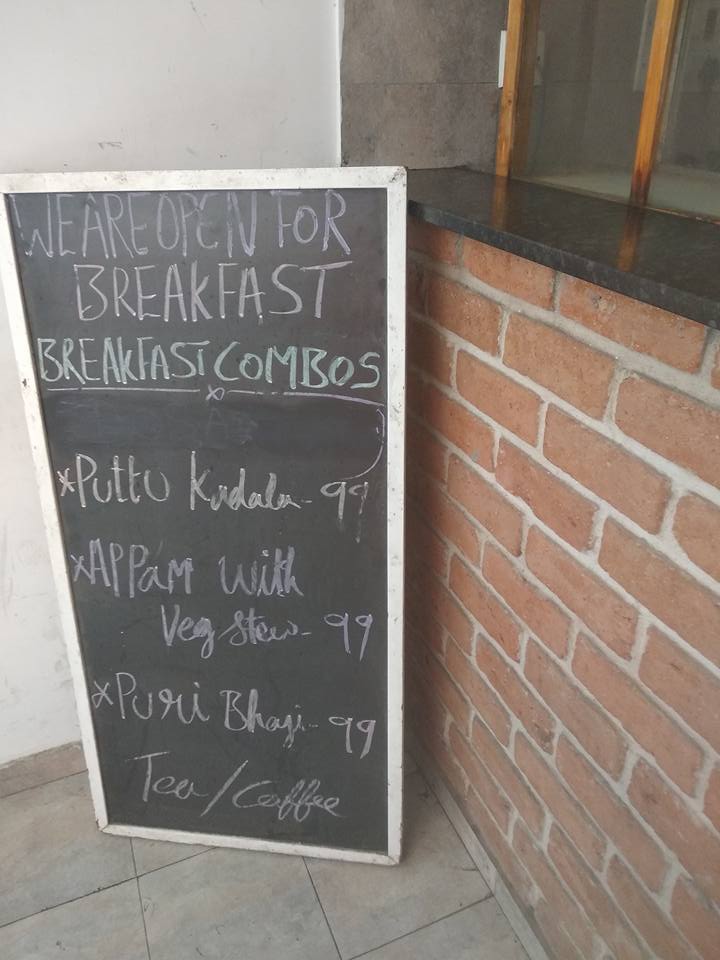 WE ARE OPEN FOR
BREAKFAST
BREAKFAST COMBOS
x
xPuttu Kadala - 99
xAPPAM with
Veg Stew - 99
xPuri Bhaji - 99
Tea/Coffee